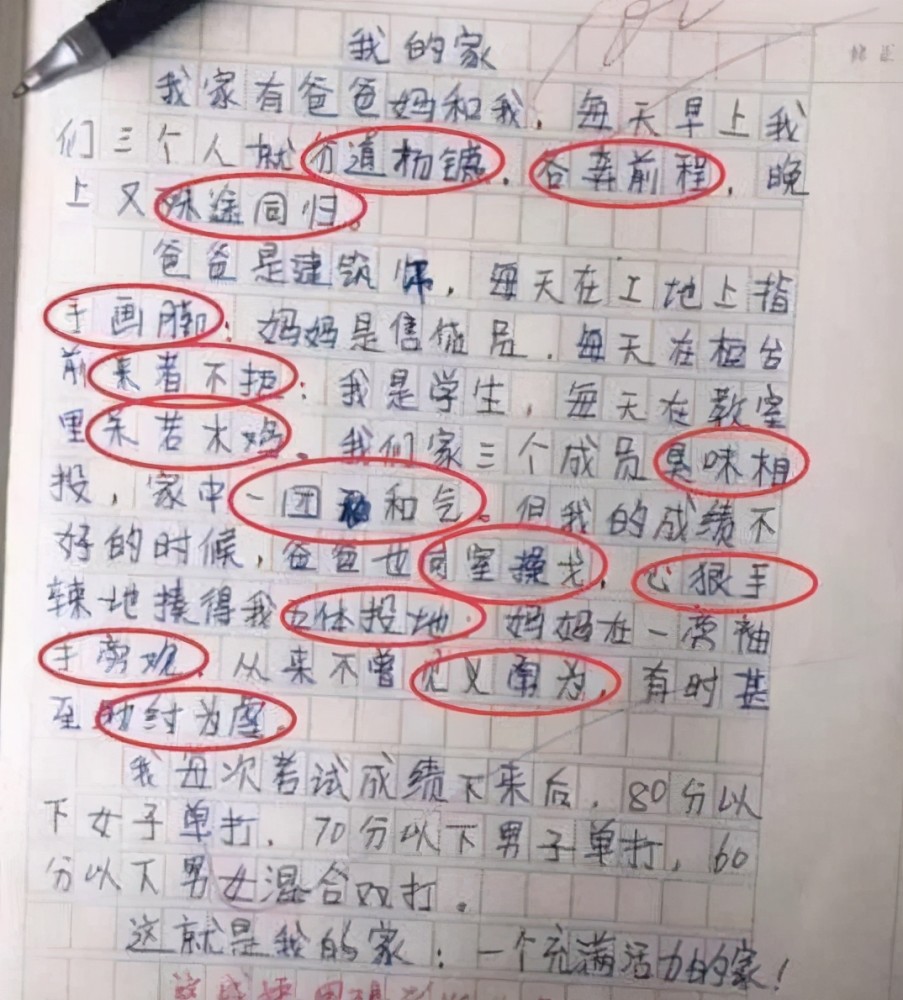 我的家
我家有爸爸妈和我,每天早上我
们三个人就分道杨镳,各奔前程,晚
上又殊途同归。
爸爸是建筑师,每天在工地上指
手画脚;妈妈是售货员,每天在柜台
前来者不拒;我是学生,每天在教室
里呆若木鸡。我们家三个成员臭味相
投,家中一团和气。但我的成绩不
好的时候,爸爸也同室操戈,心狠手
辣地揍得我五体投地。妈妈在一旁袖
手旁观,从来不曾见义勇为,有时甚
至助纣为虐。
我每次考试成绩下来后,80分以
下女子单打,70分以下男子单打,60
分以下男女混合双打。
这就是我的家:一个充满活力的家!
修正